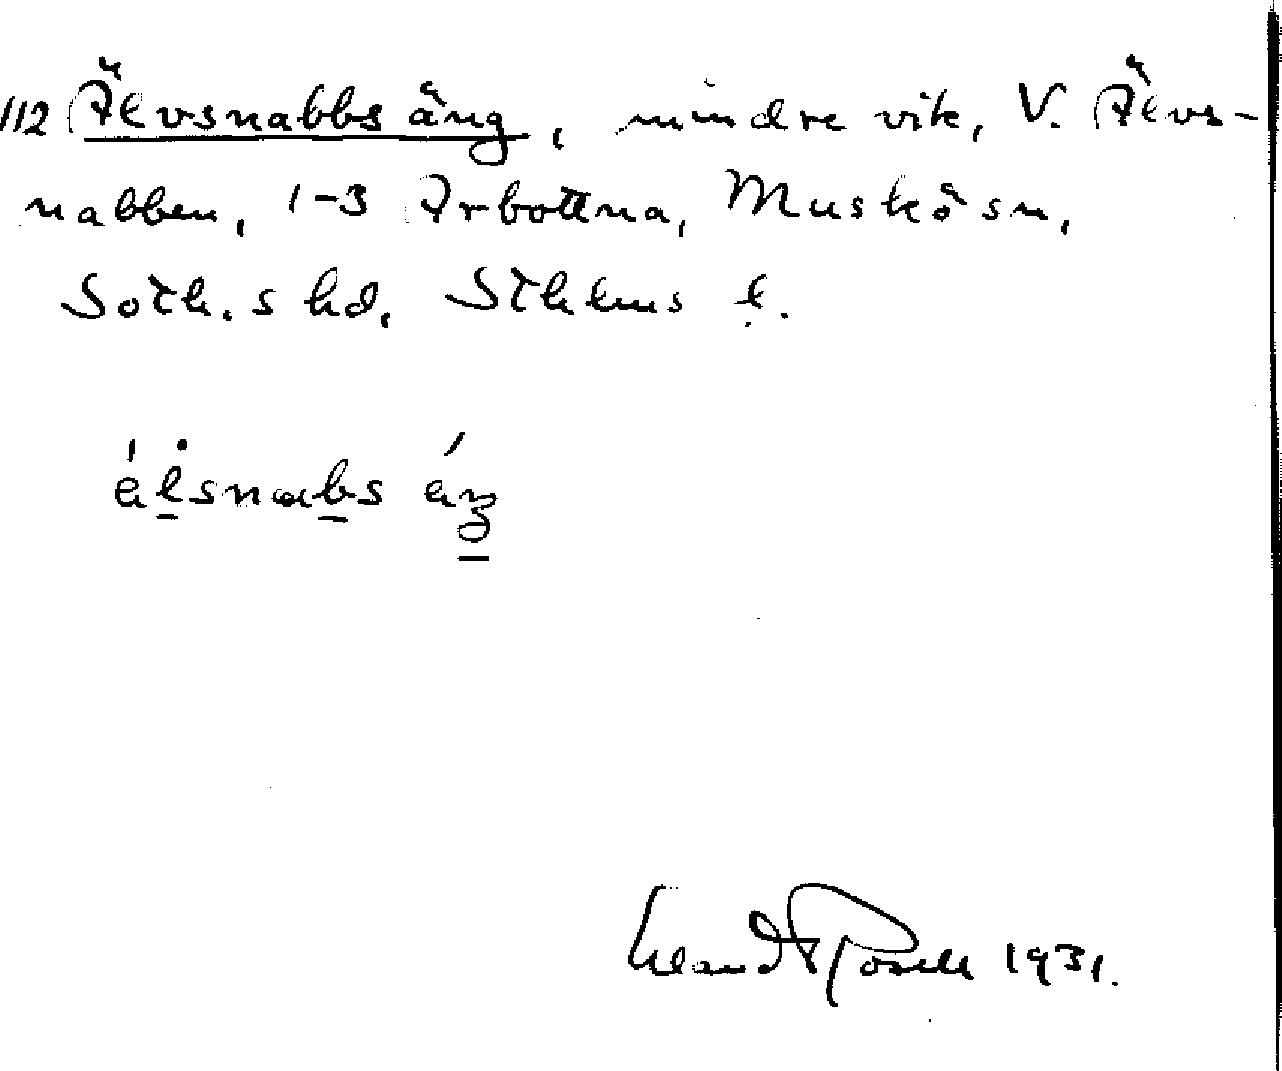 112 Älvsnabbs äng, mindre vik, V. Älvs-
nabben, 1-3 Arbottna, Muskö sn,
Soth. s hd, Sthlms l.
élsnabs áŋ
Erland Rosell 1931.